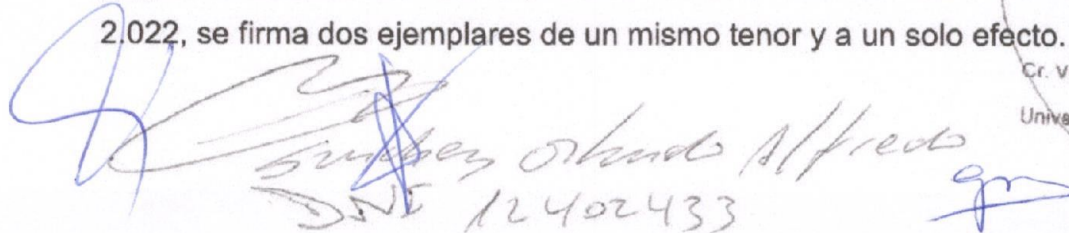 2.022, se firma dos ejemplares de un mismo tenor y a un solo efecto.
Cr. V
Unive
Sanchez Orlando Alfredo
DNI 12402433